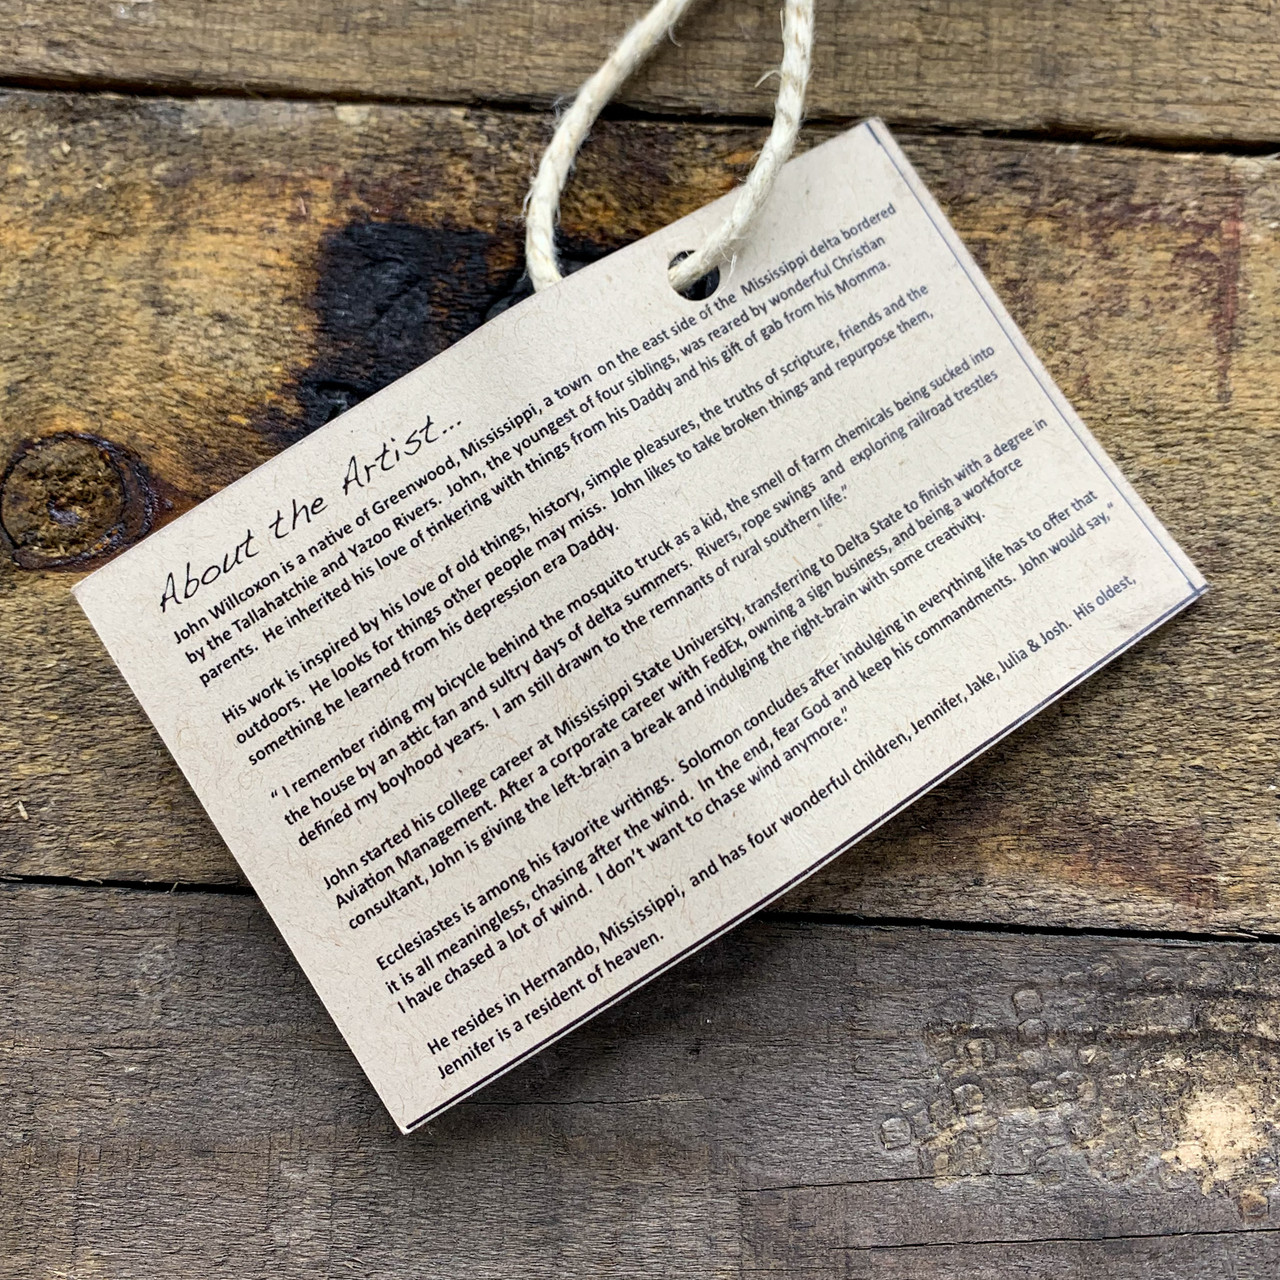 About the Artist...
John Willcoxon is a native of Greenwood, Mississippi, a town on the east side of the Mississippi delta bordered
by the Tallahatchie and Yazoo Rivers. John, the youngest of four siblings, was reared by wonderful Christian
parents. He inherited his love of tinkering with things from his Daddy and his gift of gab from his Momma.
His work is inspired by his love of old things, history, simple pleasures, the truths of scripture, friends and the
outdoors. He looks for things other people may miss. John likes to take broken things and repurpose them,
something he learned from his depression era Daddy.
“ I remember riding my bicycle behind the mosquito truck as a kid, the smell of farm chemicals being sucked into
the house by an attic fan and sultry days of delta summers. Rivers, rope swings and exploring railroad trestles
defined my boyhood years. I am still drawn to the remnants of rural southern life.”
John started his college career at Mississippi State University, transferring to Delta State to finish with a degree in
Aviation Management. After a corporate career with FedEx, owning a sign business, and being a workforce
consultant, John is giving the left-brain a break and indulging the right-brain with some creativity.
Ecclesiastes is among his favorite writings. Solomon concludes after indulging in everything life has to offer that
it is all meaningless, chasing after the wind. In the end, fear God and keep his commandments. John would say,“
I have chased a lot of wind. I don’t want to chase wind anymore.”
He resides in Hernando, Mississippi, and has four wonderful children, Jennifer, Jake, Julia & Josh. His oldest,
Jennifer is a resident of heaven.